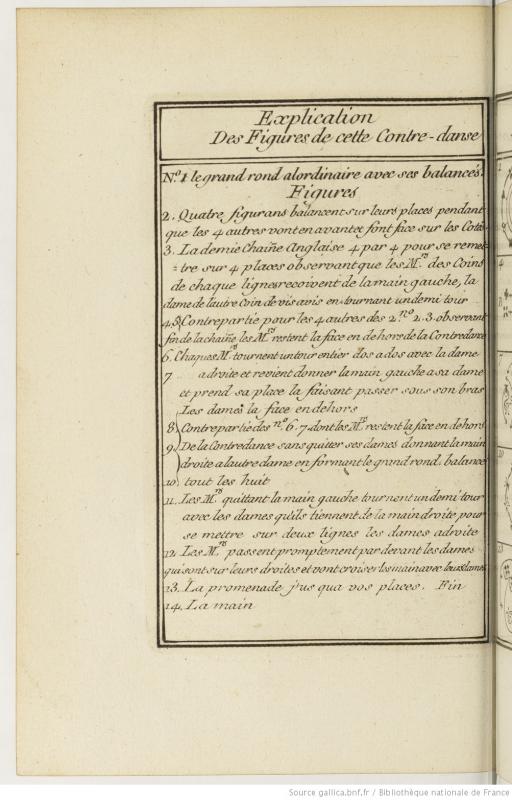 Explication
Des Figures de cette Contre-danse
N.º 1 le grand rond alordinaire avec ses balancés.
Figures
2. Quatre figurans balancent sur leurs places pendant
que les 4 autres vont en avant et font face sur les Cotés
3. La demie Chaîne Anglaise 4 par 4 pour se remet-
=tre sur 4 places observant que les M.rs des Coins
de chaque lignes recoivent de la main gauche, la
dame de lautre Coin de vis avis en tournant un demi tour
4. 5. Contrepartie pour les 4 autres des 2 n.º 2.3. observant
fin de la chaîne, les M.rs restent la face en dehors de la Contredance
6. Chaques M.rs tournent un tour entier dos a dos avec la dame
7 a droite et revient donner la main gauche a sa dame
et prend sa place la faisant passer sous son bras
Les dames la face en dehors
8. Contrepartie des n.º 6. 7. dont les M.rs restent la face en dehors
9. De la Contredance sans quitter ses dames donnant la main
droite a lautre dame en formant le grand rond. balance
10. tout les huit
11. Les M.rs quittant la main gauche tournent un demi tour
avec les dames qu'ils tiennent de la main droite pour
se mettre sur deux lignes les dames adroite
12. Les M.rs passent promptement par devant les dames
qui sont sur leurs droites et vont croiser les main avec leurs dames
13. La promenade jus qua vos places. Fin
14. La main
Source gallica.bnf.fr / Bibliothèque nationale de France